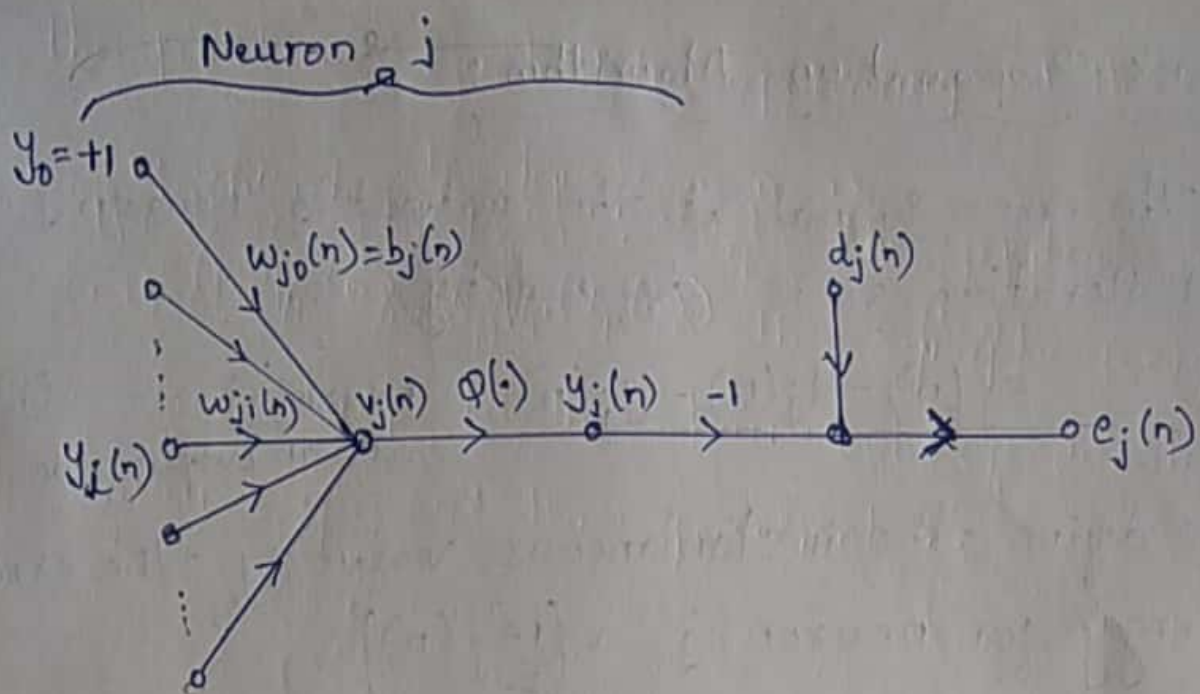 Neuron j
y₀=+1
wⱼ₀(n)=bⱼ(n)
dⱼ(n)
wⱼᵢ(n)
vⱼ(n)
φ(·)
yⱼ(n)
-1
eⱼ(n)
yᵢ(n)